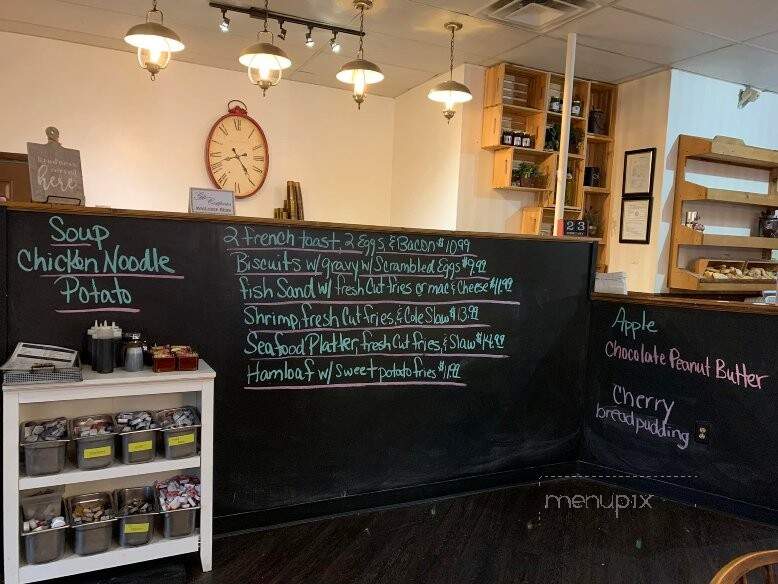 Soup
Chicken Noodle
Potato
2 french toast, 2 Eggs, & Bacon $10.99
Biscuits w/ gravy w/ Scrambled Eggs $9.99
fish Sand w/ fresh Cut fries or mac & Cheese $11.99
Shrimp, fresh Cut fries, & Cole Slaw $13.99
Seafood Platter, fresh Cut fries, & Slaw $14.99
Hamloaf w/ Sweet potato fries $11.99
Apple
Chocolate Peanut Butter
Cherry
bread pudding
kindness
served
here
23
menupix